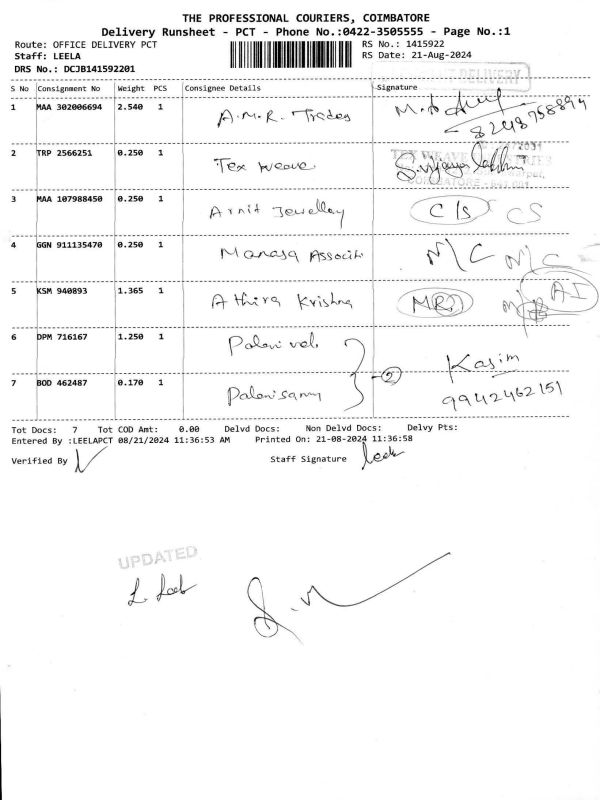 THE PROFESSIONAL COURIERS, COIMBATORE
Delivery Runsheet - PCT - Phone No.:0422-3505555 - Page No.:1
Route: OFFICE DELIVERY PCT RS No.: 1415922
Staff: LEELA RS Date: 21-Aug-2024
DRS No.: DCJB141592201
DELIVERY
S No Consignment No Weight PCS Consignee Details Signature
1 MAA 302006694 2.540 1 A.M.R. Trades
8248758894
2 TRP 2566251 0.250 1 Tex weave
TEX WEAVE
3 MAA 107988450 0.250 1 Arnit Jewellay C/s CS
4 GGN 911135470 0.250 1 Manasa Associt N/C N/C
5 KSM 940893 1.365 1 Athira Krishna MRD AI
6 DPM 716167 1.250 1 Palanivel Kasim
2
7 BOD 462487 0.170 1 Palanisamy 9942462151
Tot Docs: 7 Tot COD Amt: 0.00 Delvd Docs: Non Delvd Docs: Delvy Pts:
Entered By :LEELAPCT 08/21/2024 11:36:53 AM Printed On: 21-08-2024 11:36:58
Verified By Staff Signature
UPDATED